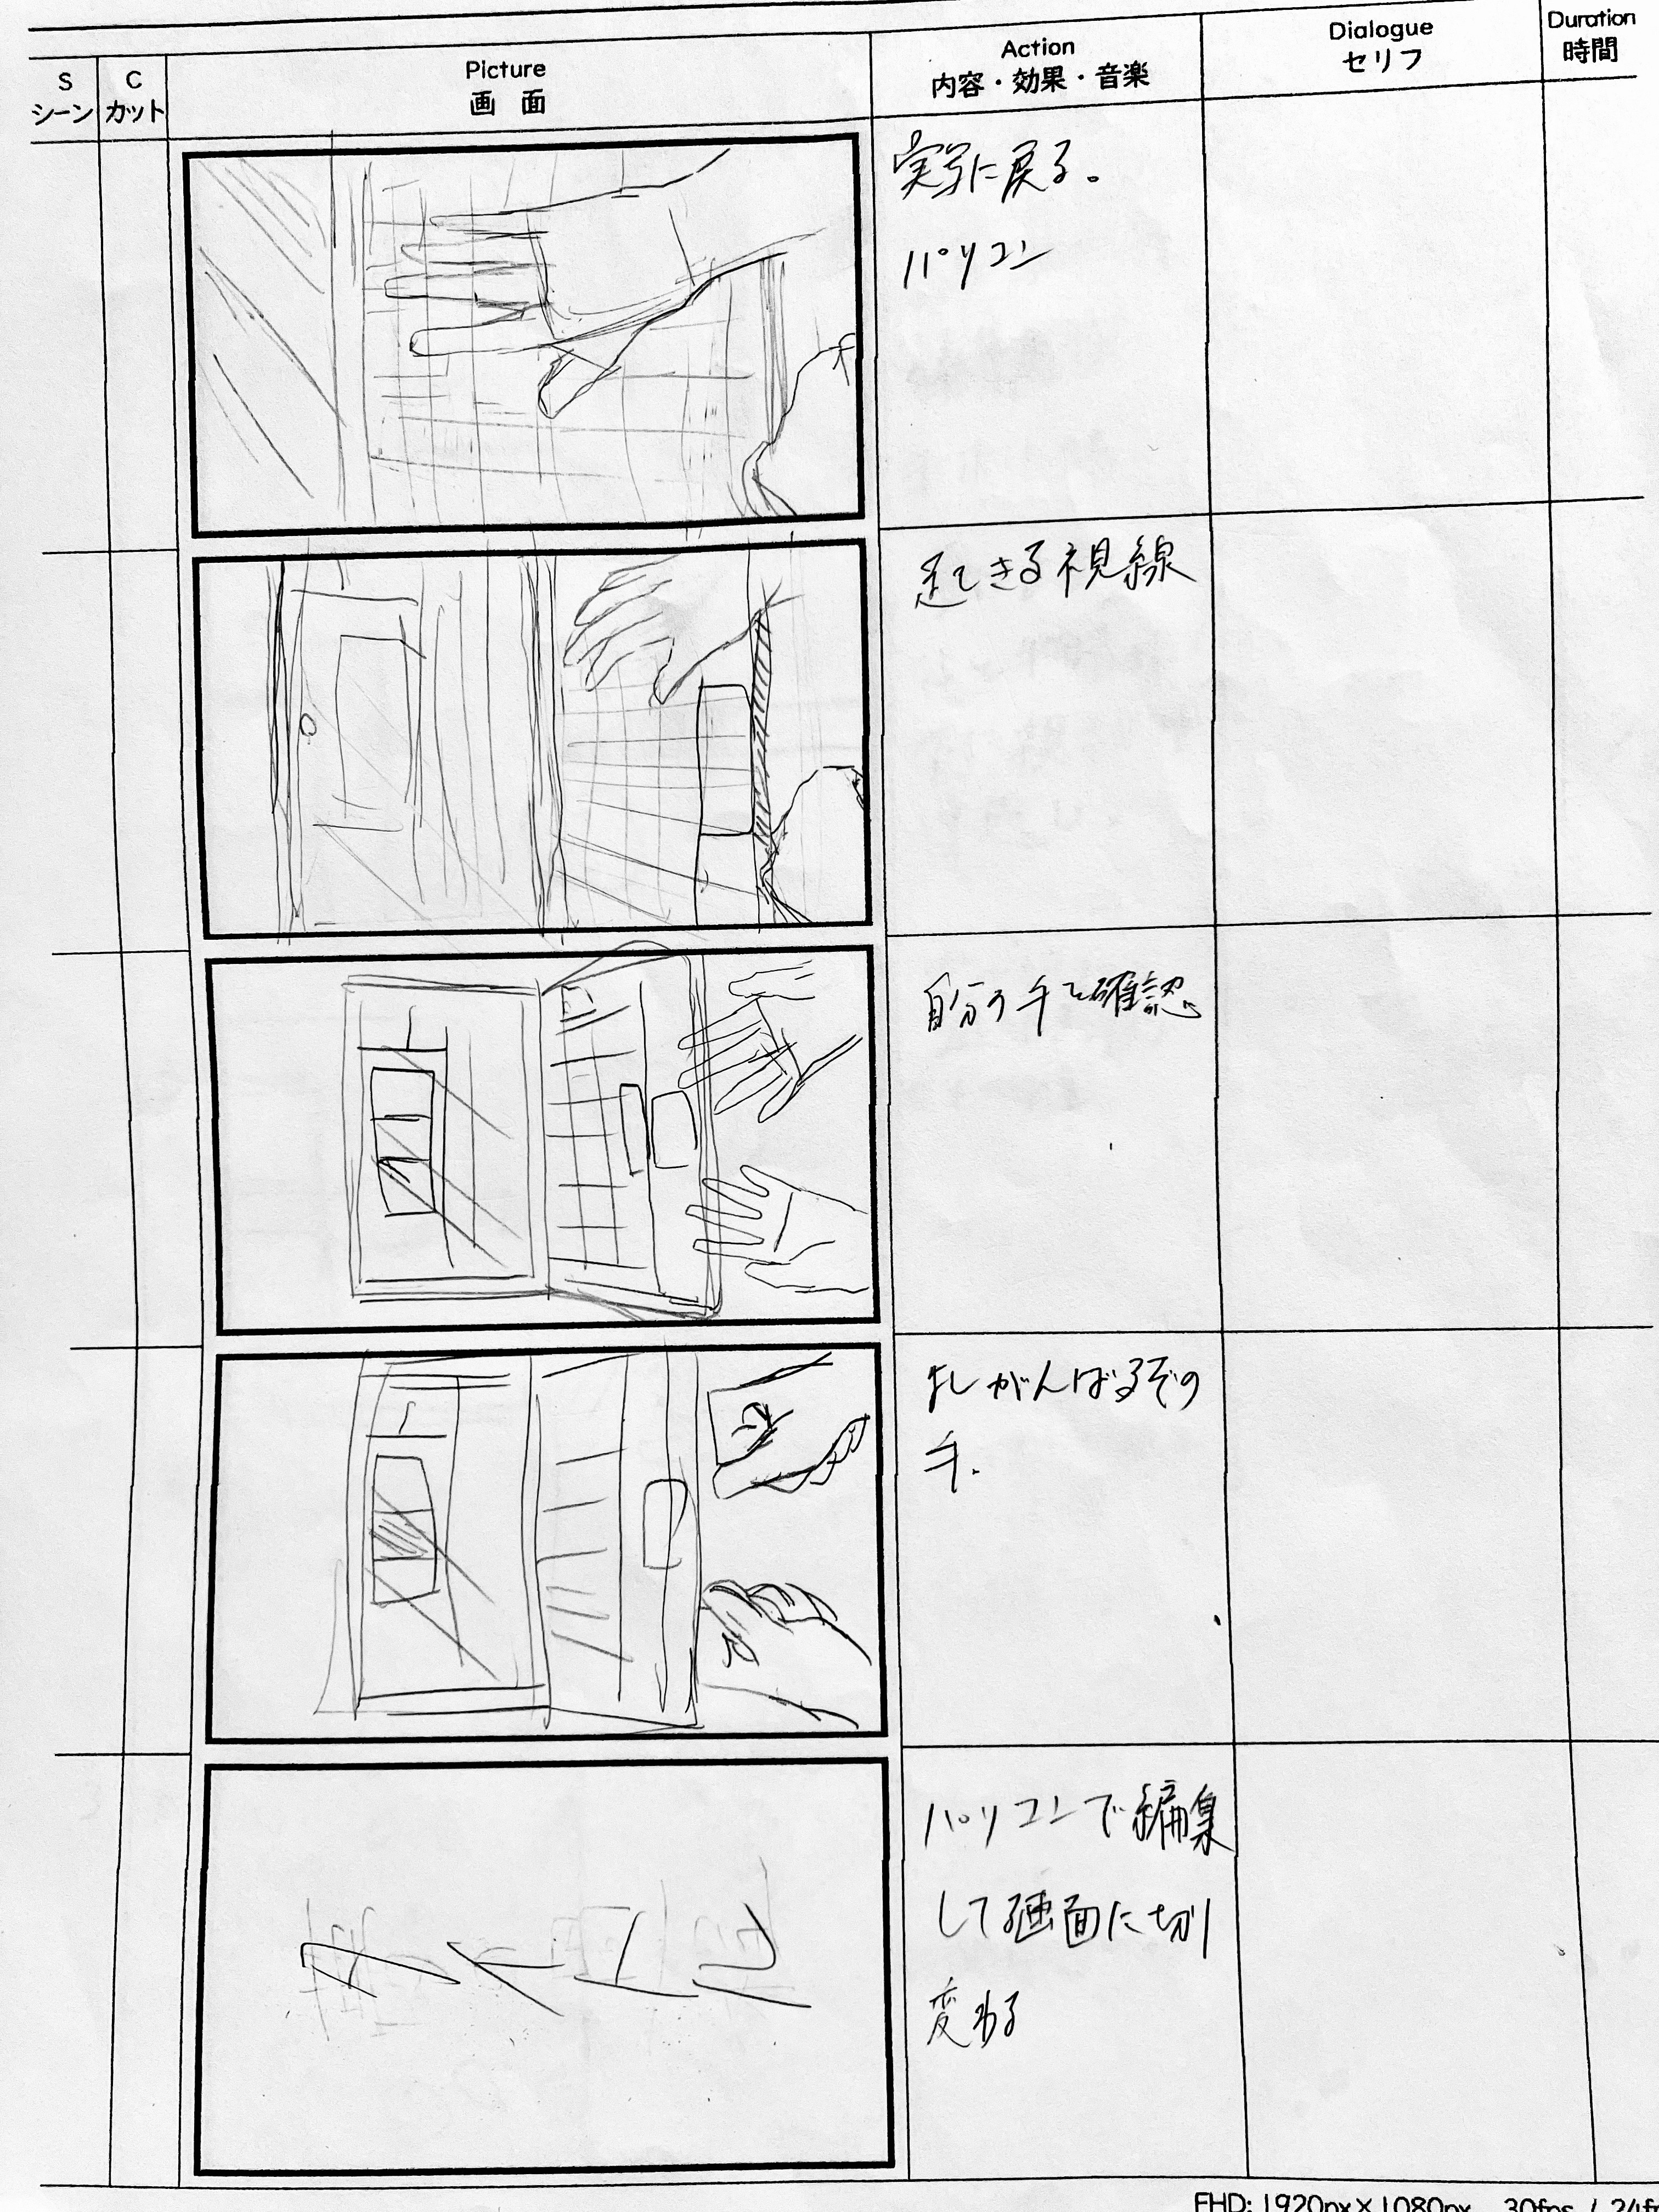 S
シーン
C
カット
Picture
画 面
Action
内容・効果・音楽
Dialogue
セリフ
Duration
時間
実写に戻る。
パソコン
起てきる視線
自分の手を確認
よしがんばるぞの
手.
パソコンで編集
してる画面に切り
変わる
タイトル
FHD: 1920px×1080px 30fps / 24f